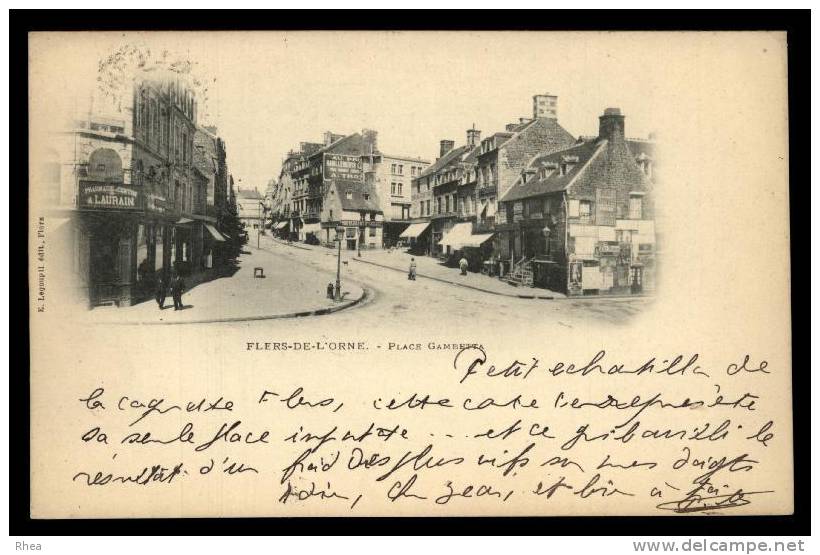 PHARMACIE CENTRALE
A. LAURAIN
E. Legoupil édit., Flers
FLERS-DE-L'ORNE. - PLACE GAMBETTA
Petit echantillon de
la coquette Flers, cette carte représente
sa seule place importante ... et ce gribouillis le
résultat d'un froid des plus vifs sur mes doigts
et bien à toi
Rhea
www.delcampe.net